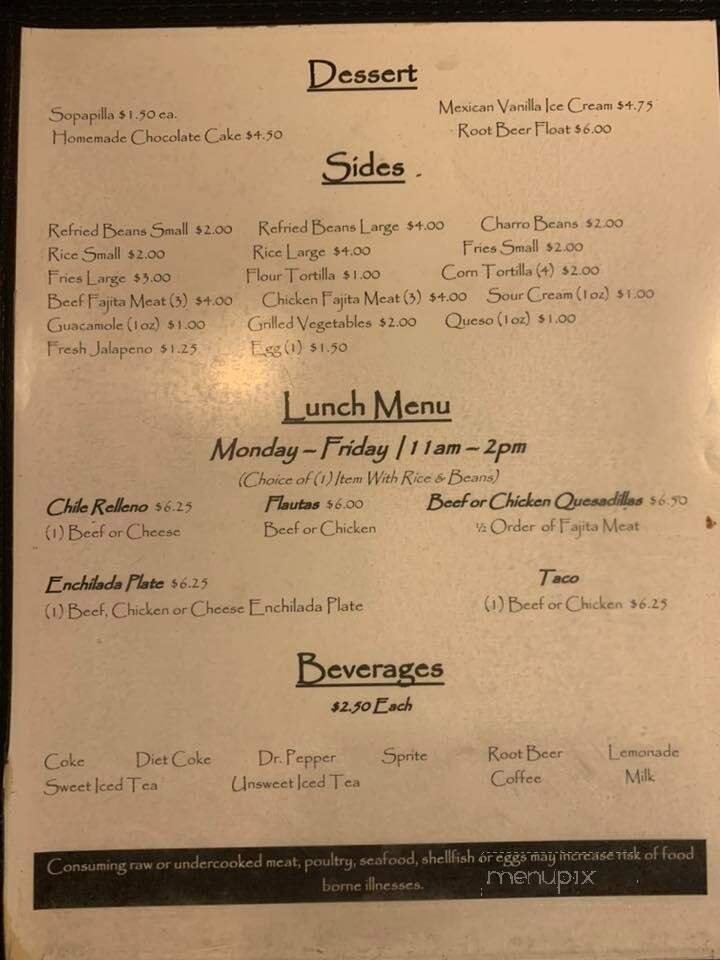 Dessert
Sopapilla $1.50 ea. Mexican Vanilla Ice Cream $4.75
Homemade Chocolate Cake $4.50 Root Beer Float $6.00
Sides
Refried Beans Small $2.00 Refried Beans Large $4.00 Charro Beans $2.00
Rice Small $2.00 Rice Large $4.00 Fries Small $2.00
Fries Large $3.00 Flour Tortilla $1.00 Corn Tortilla (4) $2.00
Beef Fajita Meat (3) $4.00 Chicken Fajita Meat (3) $4.00 Sour Cream (1 oz) $1.00
Guacamole (1 oz) $1.00 Grilled Vegetables $2.00 Queso (1 oz) $1.00
Fresh Jalapeno $1.25 Egg (1) $1.50
Lunch Menu
Monday – Friday | 11am – 2pm
(Choice of (1) Item With Rice & Beans)
Chile Relleno $6.25 Flautas $6.00 Beef or Chicken Quesadillas $6.50
(1) Beef or Cheese Beef or Chicken ½ Order of Fajita Meat
Enchilada Plate $6.25 Taco
(1) Beef, Chicken or Cheese Enchilada Plate (1) Beef or Chicken $6.25
Beverages
$2.50 Each
Coke Diet Coke Dr. Pepper Sprite Root Beer Lemonade
Sweet Iced Tea Unsweet Iced Tea Coffee Milk
Consuming raw or undercooked meat, poultry, seafood, shellfish or eggs may increase risk of food
borne illnesses.
menupix